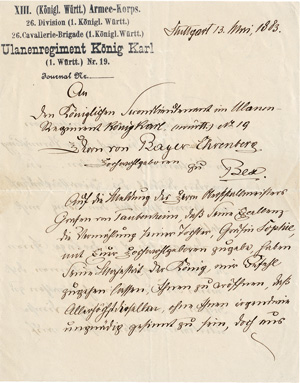 XIII. (Königl. Württ.) Armee-Korps.
26. Division (1. Königl. Württ.)
26. Cavallerie-Brigade (1. Königl. Württ.)
Ulanenregiment König Karl
(1. Württ.) Nr. 19.
Journal Nr.
Stuttgart 13. Mai, 1883.
An
den Königlichen Secondlieutenant im Ulanen-
Regiment König Karl (württb) No 19
Herrn von Bayer Ehrenberg
Hochwohlgeboren
zu
Bex
Auf die Meldung des Herrn
Grafen von Taubenheim, daß Seine Excellenz
die Vermählung seiner Tochter, Gräfin Sophie,
mit Euer Hochwohlgeboren zugebe, haben
Seine Majestät der König, mir Befehl
zugehen lassen, Ihnen zu eröffnen, daß
Allerhöchstdieselben, ohne Ihnen irgendwie
ungnädig gesinnt zu sein, doch aus